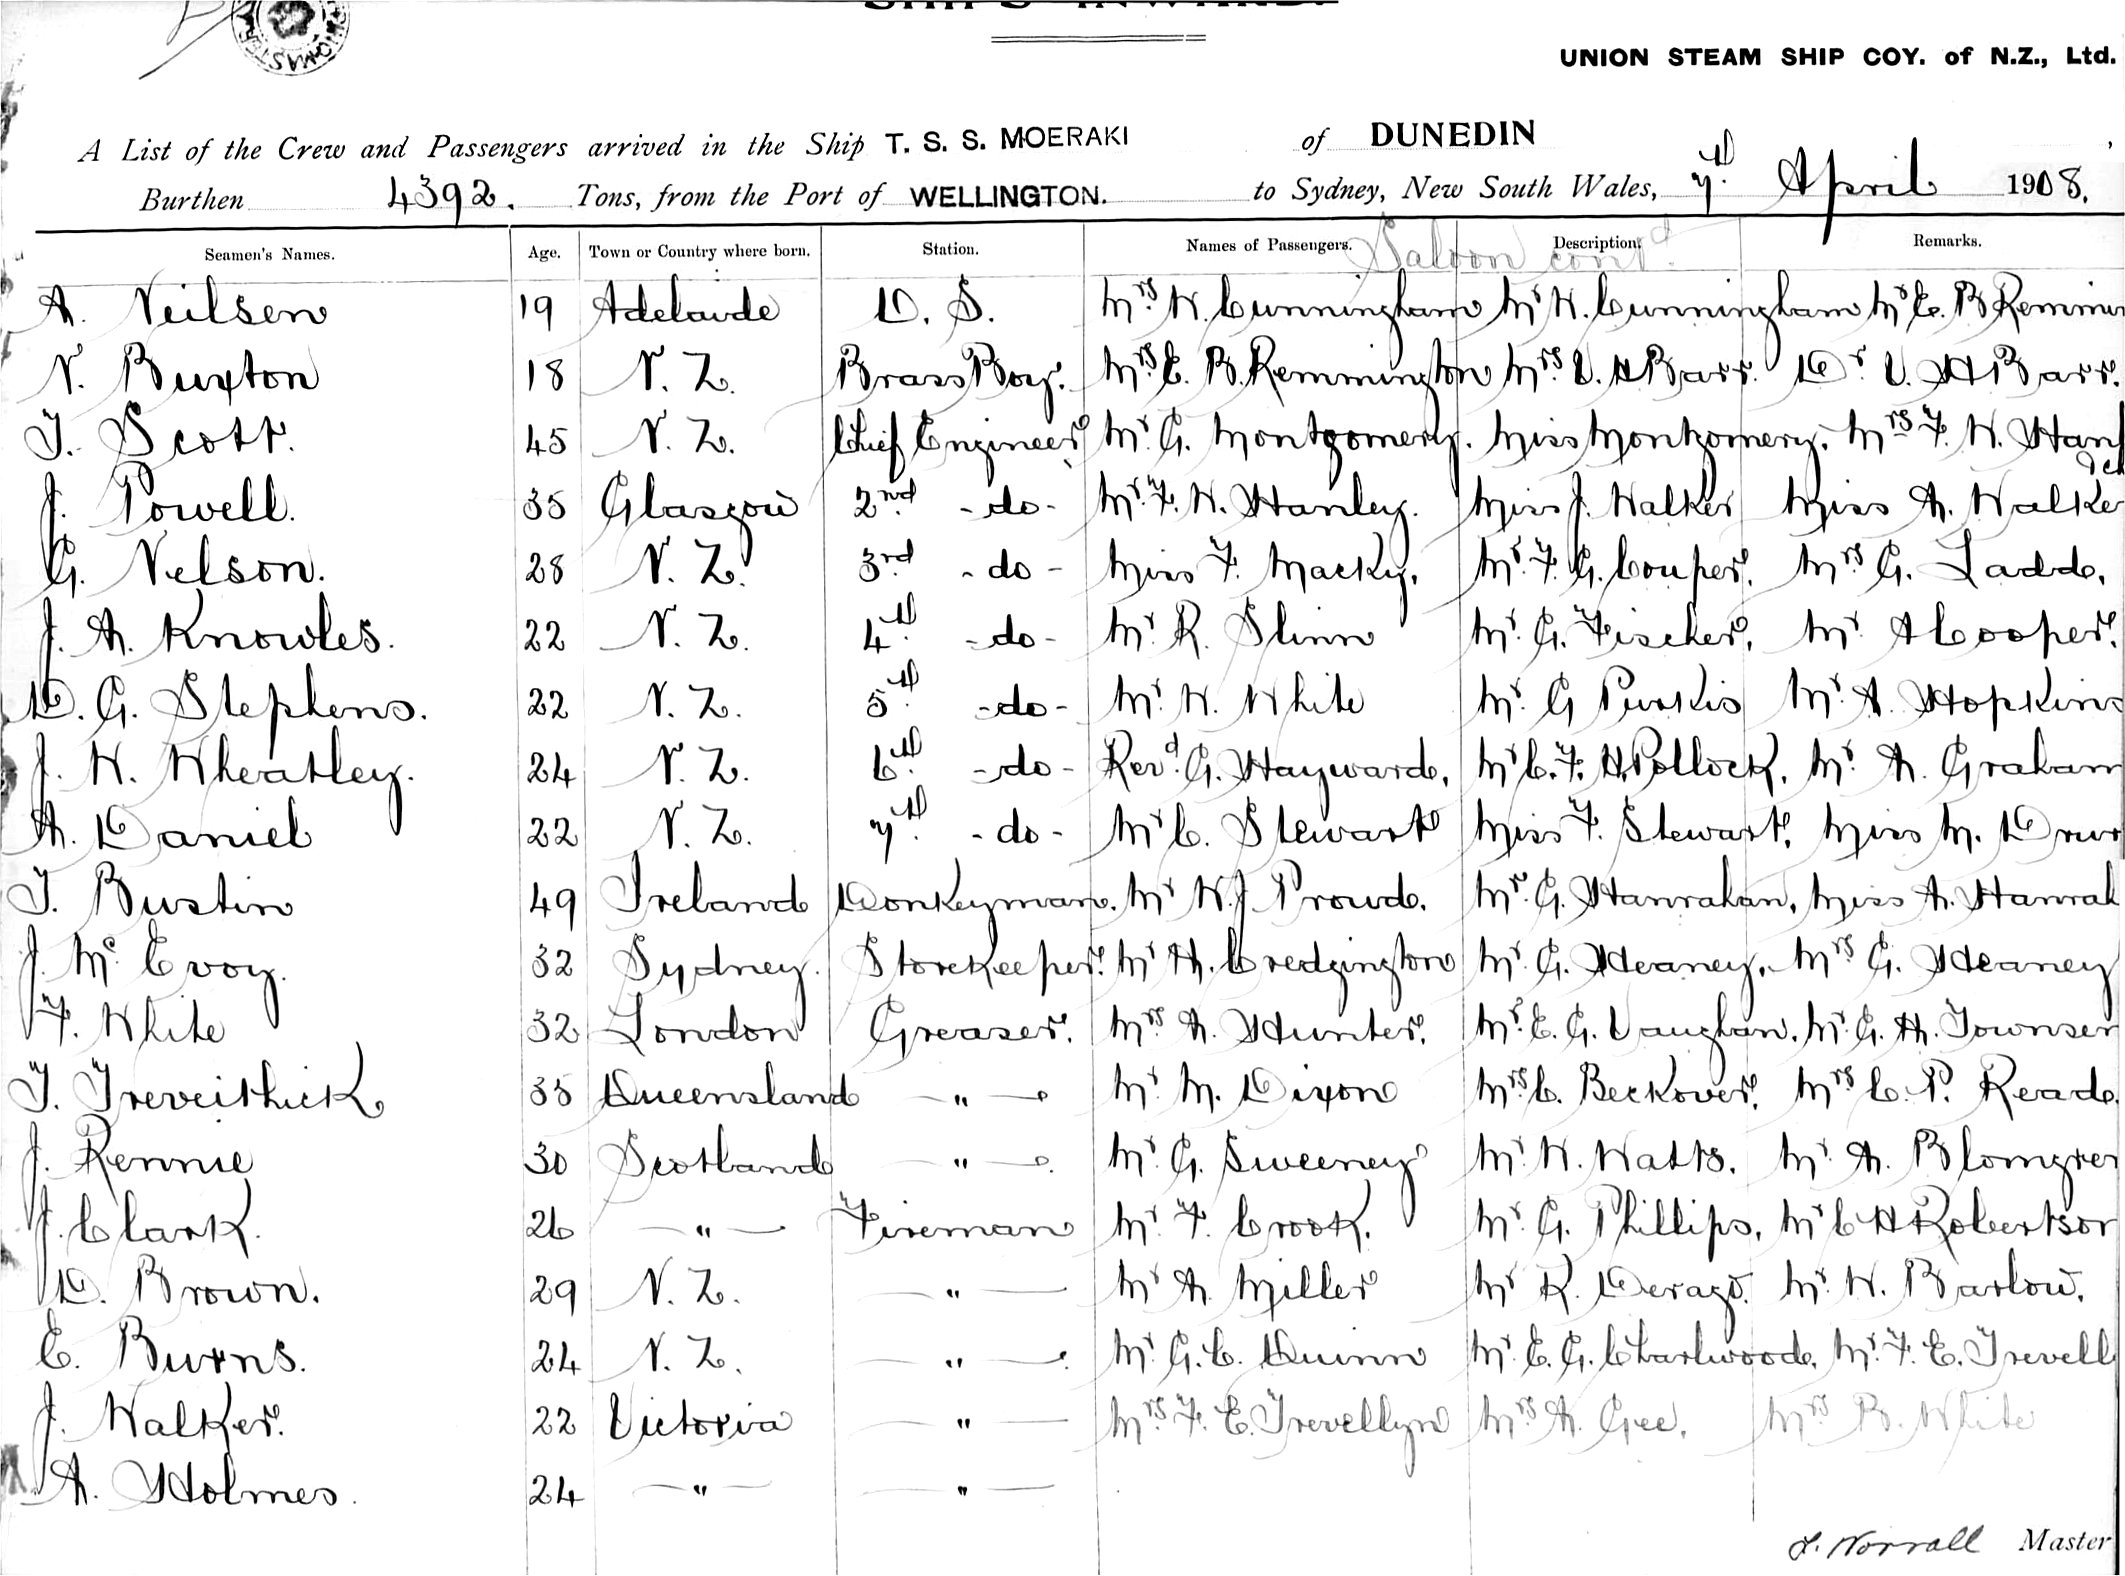 UNION STEAM SHIP COY. of N.Z., Ltd.
A List of the Crew and Passengers arrived in the Ship T. S. S. MOERAKI of DUNEDIN,
Burthen 4392. Tons, from the Port of WELLINGTON. to Sydney, New South Wales, 7th April 1908.
Seamen's Names. Age. Town or Country where born. Station. Names of Passengers. Description. Remarks.
Saloon contd.
A. Neilsen 19 Adelaide O. S. Mrs W. Cunningham Mr W. Cunningham Mr C. B Remmin
N. Buxton 18 N. Z. Brass Boy. Mrs C. B. Remmington Mrs V. H Barr. Dr V. H Barr.
T. Scott. 45 N. Z. Chief Engineer Mr G. Montgomery. Miss Montgomery. Mrs F. W. Hanl
J. Powell. 35 Glasgow 2nd -do- Mr F. W. Hanley. Miss J. Walker Miss A. Walker
G. Nelson. 28 N. Z. 3rd -do- Miss F. Macky. Mr F. G. Couper. Mrs G. Ladd.
J. A. Knowles. 22 N. Z. 4th -do- Mr R. Slinn Mr G. Fischer. Mr A Cooper.
D. G. Stephens. 22 N. Z. 5th -do- Mr W. White Mr G Purkis Mr A. Hopkins
J. W. Wheatley. 24 N. Z. 6th -do- Revd G. Hayward. Mr C. F. H. Pollock. Mr A. Graham
A. Daniel 22 N. Z. 7th -do- Mr C. Stewart Miss F. Stewart. Miss M.
T. Bustin 49 Ireland Donkeyman. Mr W. J Proud. Mr G. Hanrahan. Miss A. Hanrah
J. Mc Evoy. 32 Sydney. Storekeeper. Mr H. Credgington Mr G. Heaney. Mrs G. Heaney
F. White 32 London Greaser. Mrs A. Hunter. Mr E. G. Vaughan. Mr G. H. Townsen
T. Treveithick. 35 Queensland -"- Mr M. Dixon Mrs C. Beckover. Mrs C. P. Read.
J. Rennie 30 Scotland -"- Mr G. Sweeney Mr W. Watts. Mr A. Blomgren
J. Clark. 26 -"- Fireman Mr F. Crook. Mr G. Phillips. Mr C H Robertson
D. Brown. 29 N. Z. -"- Mr A. Miller Mr R. Mr W. Barlow.
E. Burns. 24 N. Z. -"- Mr G. C. Quinn Mr E. G. Charlwood. Mr F. E. Trevell
J. Walker. 22 Victoria -"- Mrs F. E. Trevellyn Mrs A. Gee. Mrs B. White
A. Holmes. 24 -"- -"-
L. Worrall Master